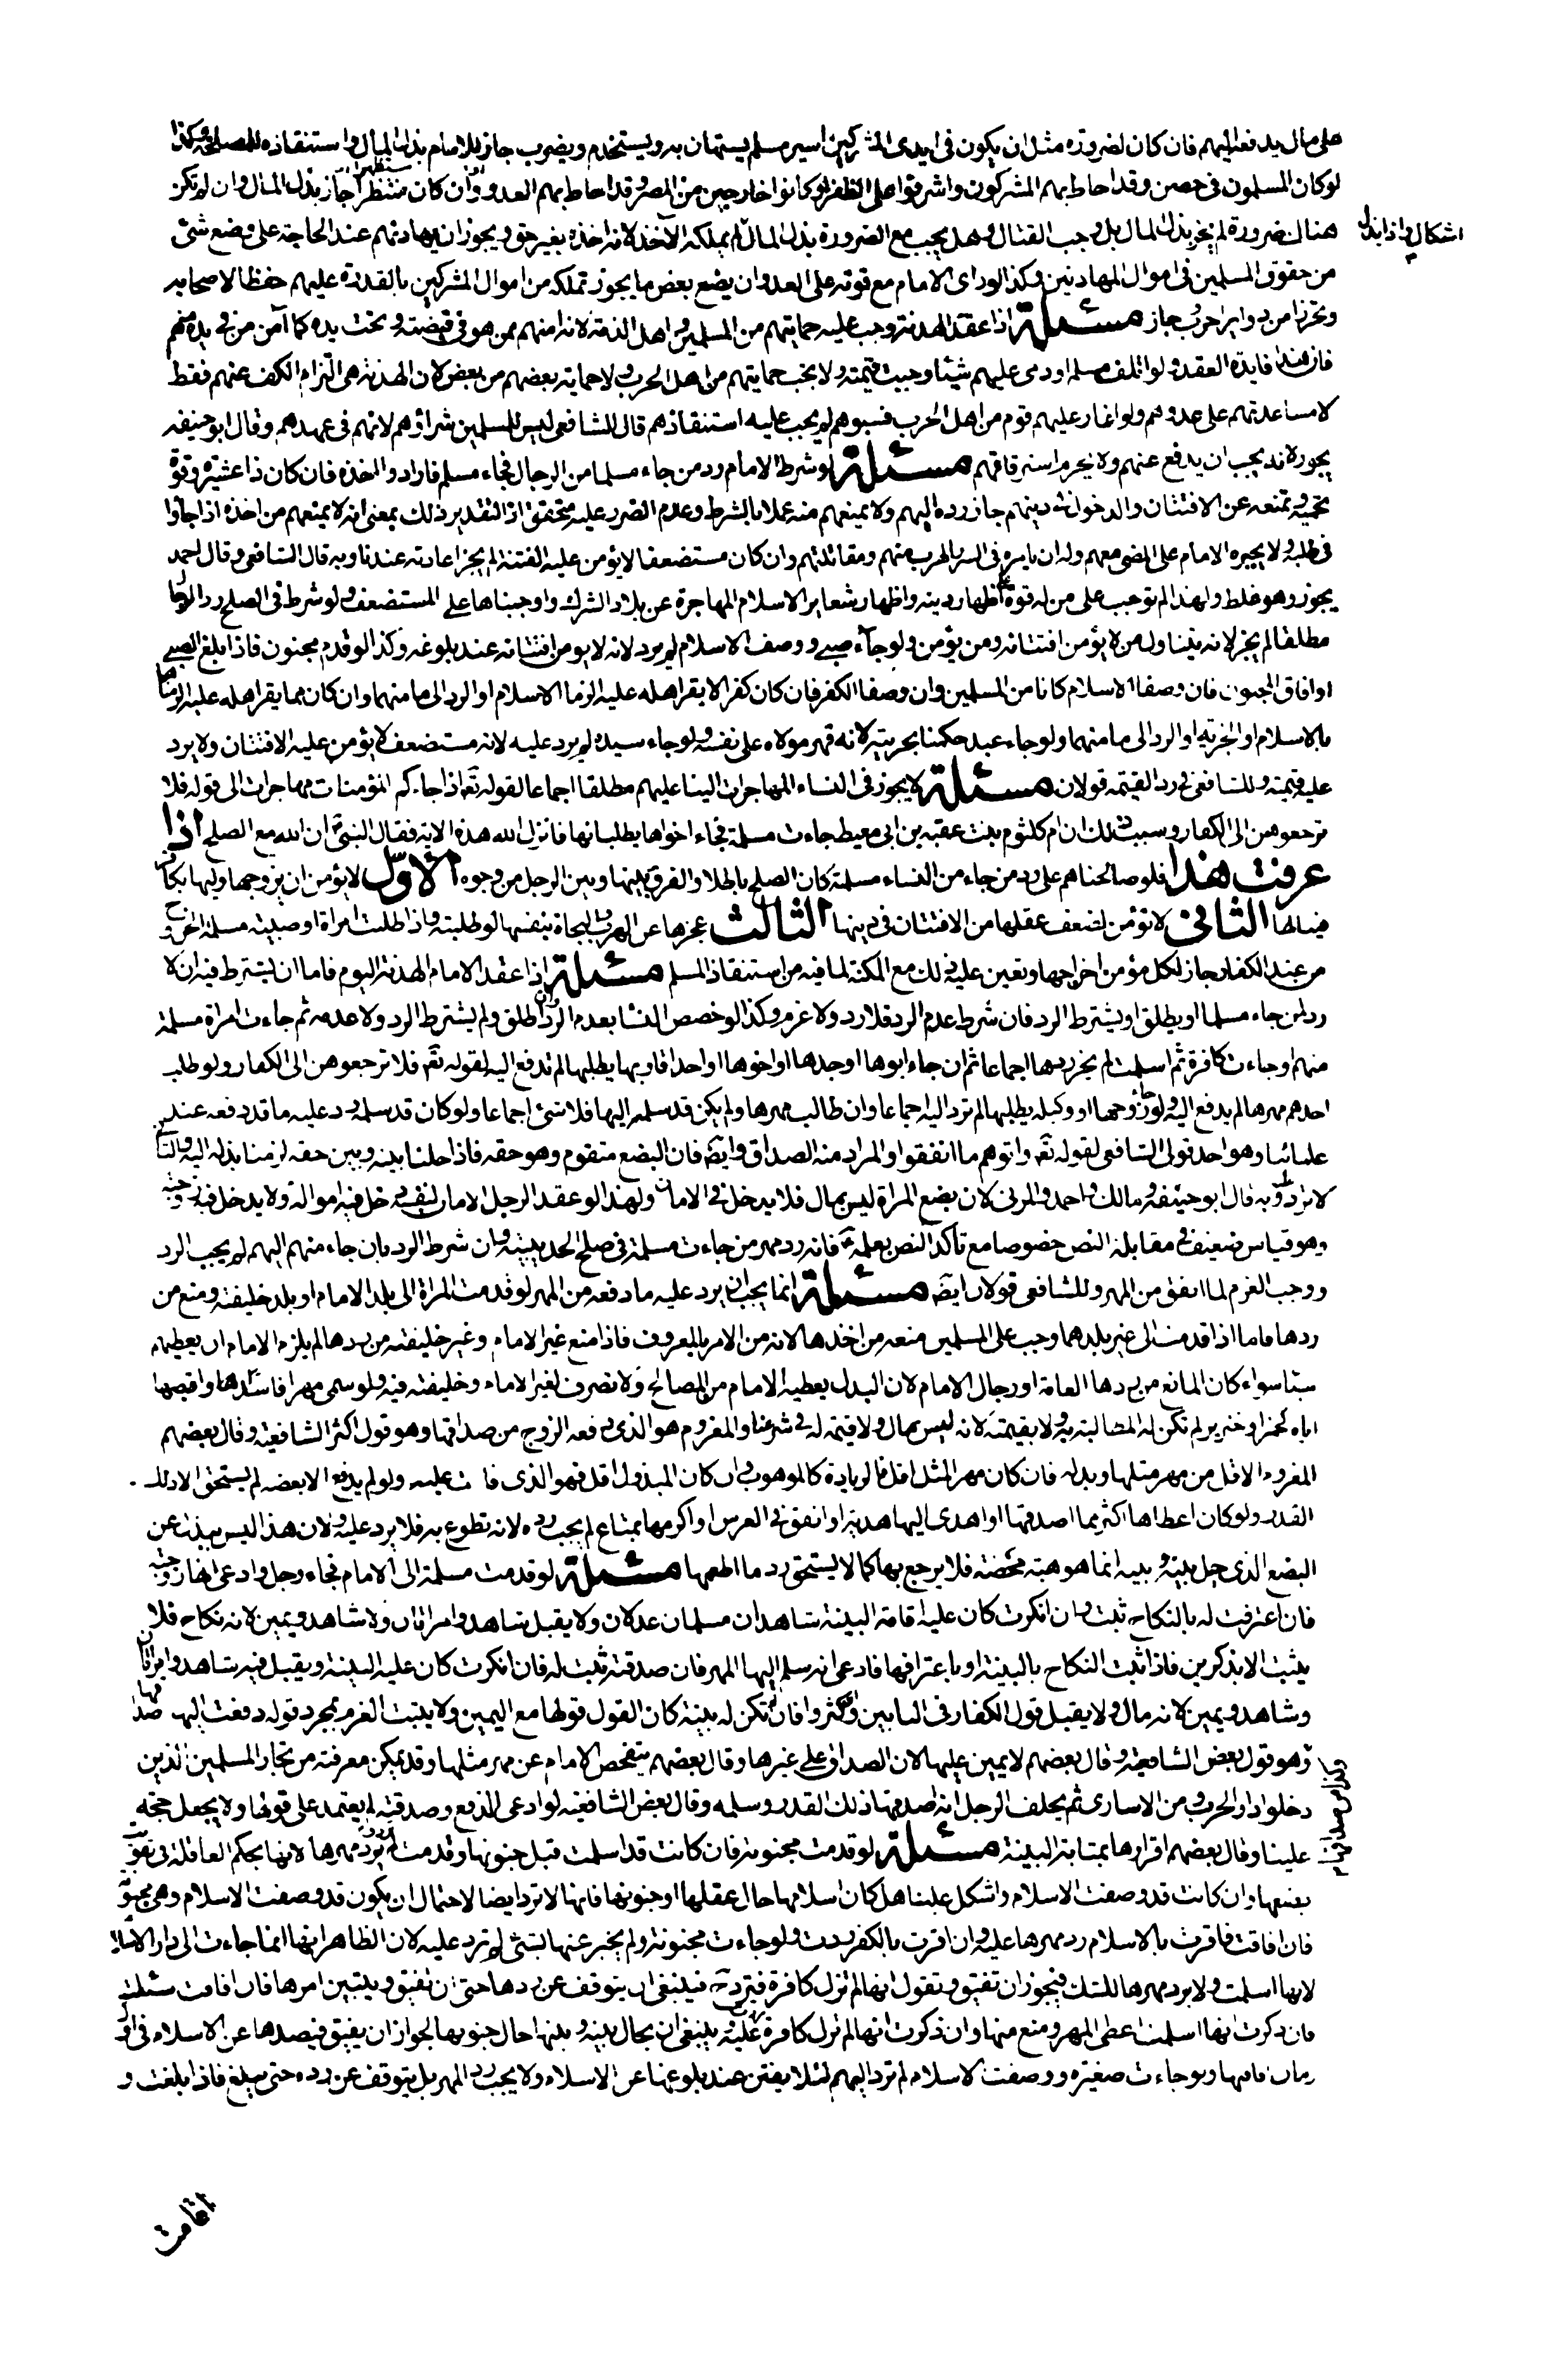 على مال يدفعه اليهم فان كان لضرورة مثل ان يكون في ايدى المشركين اسير مسلم يستهان به ويستخدم ويضرب جاز للامام بذل المال واستنقاذه للمصلحة وكذا
لو كان المسلمون في حصن وقد احاط بهم المشركون واشرفوا على الظفر او كانوا خارجين من المصر وقد احاط بهم العدو وان كان مستظهرا جاز بذل المال وان لم تكن
هناك ضرورة لم يجز بذل المال بل وجب القتال وهل يجب مع الضرورة بذل المال لم يملكه الآخذ لانه اخذه بغير حق ويجوز ان يهادنهم عند الحاجة على وضع شئ
اشكال واذا بذل
من حقوق المسلمين في اموال المهادنين وكذا لو راى الامام مع قوته على العدو ان يضع بعض ما يجوز تملكه من اموال المشركين بالقدرة عليهم حفظا لاصحابه
وتحرزا من دواير الحرب جاز مسئلة اذا عقد الهدنة وجب عليه حمايتهم من المسلمين واهل الذمة لانه امنهم ممن هو في قبضته وتحت يده كما آمن من في يده منهم
فان هذا فايدة العقد ولو اتلف مسلم او ذمى عليهم شيئا وجبت قيمته ولا يجب حمايتهم من اهل الحرب ولا حماية بعضهم من بعض لان الهدنة هى التزام الكف عنهم فقط
لا مساعدتهم على عدوهم ولو اغار عليهم قوم من اهل الحرب فسبوهم لم يجب عليه استنقاذهم قال الشافعى ليس للمسلمين شراؤهم لانهم في عهدهم وقال ابو حنيفه
يجوز لانه لا يجب ان يدفع عنهم ولا يحرم استرقاقهم مسئلة لو شرط الامام رد من جاء مسلما من الرجال فجاء مسلم فارادوا اخذه فان كان ذا عشيرة وقوة
تحميه وتمنعه عن الافتتان والدخول في دينهم جاز رده اليهم ولا يمنعهم منه عملا بالشرط وعدم الضرر عليه متحقق اذ التقدير ذلك بمعنى انه لا يمنعهم من اخذه اذا جاؤا
في طلبه ولا يجبره الامام على المضى معهم وله ان يامره في السر بالهرب منهم ومقاتلتهم وان كان مستضعفا لا يؤمن عليه الفتنة لم يجز اعادته عندنا وبه قال الشافعى وقال احمد
يجوز وهو غلط ولهذا لم نوجب على من له قوة على اظهار دينه واظهار شعاير الاسلام المهاجرة عن بلاد الشرك واوجبناها على المستضعف ولو شرط في الصلح رد الرجال
مطلقا لم يجز لانه يتناول من لا يؤمن افتتانه ومن يؤمن ولو جاء صبى ووصف الاسلام لم يرد لانه لا يؤمن افتتانه عند بلوغه وكذا لو قدم مجنون فاذا بلغ الصبى
او افاق المجنون فان وصفا الاسلام كانا من المسلمين وان وصفا الكفر فان كان كفرا لا يقر اهله عليه الزما الاسلام او الرد الى مامنهما وان كان مما يقر اهله عليه الزمناهما
بالاسلام او الجزية او الرد الى مامنهما ولو جاء عبد حكمنا بحريته لانه قهر مولاه على نفسه ولو جاء سيده لم يرد عليه لانه مستضعف لا يؤمن عليه الافتتان ولا يرد
عليه قيمته وللشافعى في رد القيمة قولان مسئلة لا يجوز رد النساء المهاجرات الينا عليهم مطلقا اجماعا لقوله تعه اذا جاءكم المؤمنات مهاجرات الى قوله فلا
ترجعوهن الى الكفار وسبب ذلك ان ام كلثوم بنت عقبه بن ابى معيط جاءت مسلمة فجاء اخواها يطلبانها فانزل الله هذه الاية فقال النبى ان الله منع الصلح اذا
عرفت هذا فلو صالحناهم على رد من جاء من النساء مسلمة كان الصلح باطلا والفرق بينها وبين الرجل من وجوه الاول لا يؤمن ان يزوجها وليها بكافر
فينالها الثانى لا تؤمن لضعف عقلها من الافتتان في دينها الثالث عجزها عن الهرب والنجاة بنفسها لو طلبته واذا طلبت امراة او صبية مسلمة الخروج
من عند الكفار جاز لكل مؤمن اخراجها وتعين عليه ذلك مع المكنة لما فيه من استنقاذ المسلم مسئلة اذا عقد الامام الهدنة اليوم فاما ان يشترط فيه ان لا
رد لمن جاء مسلما او يطلق او يشترط الرد فان شرط عدم الرد فلا رد ولا غرم وكذا لو خصص النساء بعدم الرد وان اطلق ولم يشترط الرد ولا عدمه ثم جاءت امراة مسلمة
منهم او جاءت كافرة ثم اسلمت لم يجز ردها اجماعا ثم ان جاء ابوها او جدها او اخوها او احد اقاربها يطلبها لم تدفع اليه لقوله تعه فلا ترجعوهن الى الكفار ولو طلب
احدهم مهرها لم يدفع اليه ولو جاء زوجها او وكيله يطلبها لم ترد اليه اجماعا وان طالب مهرها ولم يكن قد سلمه اليها فلا شئ اجماعا ولو كان قد سلمه رد عليه ما قد دفعه عند
علمائنا وهو احد قولى الشافعى لقوله تعه واتوهم ما انفقوا والمراد منه الصداق وايضه فان البضع متقوم وهو حقه فاذا حلنا بينه وبين حقه لزمنا بذله اليه والثانى
لا يرد وبه قال ابو حنيفة ومالك واحمد والمزنى لان بضع المراة ليس بمال فلا يدخل في الامان ولهذا لو عقد الرجل الامان لنفسه دخل فيه امواله ولا يدخل فيه زوجته
وهو قياس ضعيف في مقابلة النص خصوصا مع تأكد النص بعمله فانه رد مهر من جاءت مسلمة في صلح الحديبية وان شرط الرد بان جاء منهم اليهم لم يجب الرد
ووجب الغرم لما انفق من المهر وللشافعى قولان ايضه مسئلة انما يجب ان يرد عليه ما دفعه من المهر لو قدمت المراة الى بلد الامام او بلد خليفته ومنع من
ردها فاما اذا قدمت الى غير بلدهما وجب على المسلمين منعه من اخذها لانه من الامر بالمعروف فاذا منع غير الامام وغير خليفته من ردها لم يلزم الامام ان يعطيهم
شيئا سواء كان المانع من ردها العامة او رجال الامام لان البدل يعطيه الامام من المصالح ولا تصرف لغير الامام وخليفته فيه ولو سمى مهرا فاسدا واقبضها
اياه كخمر او خنزير لم تكن له المطالبة به ولا بقيمته لانه ليس بمال ولا قيمة له في شرعنا والمغروم هو الذى دفعه الزوج من صداقها وهو قول اكثر الشافعية وقال بعضهم
المغروم الاقل من مهر مثلها وبدله فان كان مهر المثل اقل فالزيادة كالموهوب وان كان المبذول اقل فهو الذى فات عليه ولو لم يدفع الا بعضه لم يستحق الا ذلك
القدر ولو كان اعطاها اكثر مما اصدقها او اهدى اليها هدية او انفق في العرس او اكرمها بمتاع لم يجب رده لانه تطوع به فلا يرد عليه ولان هذا ليس ببدل عن
البضع الذى حيل بينه وبينه انما هو هبة محضة فلا يرجع بها كما لا يستحق رد ما اطعمها مسئلة لو قدمت مسلمة الى الامام فجاء رجل وادعى انها زوجته
فان اعترفت له بالنكاح ثبت وان انكرت كان عليه اقامة البينة شاهدان مسلمان عدلان ولا يقبل شاهد وامراتان ولا شاهد ويمين لانه نكاح فلا
يثبت الا بذكرين فاذا ثبت النكاح بالبينة او باعترافها فادعى انه سلم اليها المهر فان صدقته ثبت له فان انكرت كان عليه البينة ويقبل فيه شاهد وامراتان
وشاهد ويمين لانه مال ولا يقبل قول الكفار في البابين وان كثروا فان لم تكن له بينة كان القول قولها مع اليمين ولا يثبت الغرم بمجرد قوله دفعت اليها صداقها
وهو قول بعض الشافعية وقال بعضهم لا يمين عليها لان الصداق على غيرها وقال بعضهم يتفحص الامام عن مهر مثلها وقد يمكن معرفته من تجار المسلمين الذين
دخلوا دار الحرب ومن الاسارى ثم يحلف الرجل انه اصدقها ذلك القدر وسلمه وقال بعض الشافعية لو ادعى الدفع وصدقته لم يعتمد على قولها ولا يجعل حجة
علينا وقال بعضهم اقرارها بمثابة البينة مسئلة لو قدمت مجنونة فان كانت قد اسلمت قبل جنونها وقدمت لم ترد ورد مهرها لانها بحكم العاقلة في تفويت
بضعها وان كانت قد وصفت الاسلام واشكل علينا هل كان اسلامها حال عقلها او جنونها فانها لا ترد ايضا لاحتمال ان يكون قد وصفت الاسلام وهى مجنونة
فان افاقت فاقرت بالاسلام رد مهرها عليه وان اقرت بالكفر ردت ولو جاءت مجنونة ولم يخبر عنها بشئ لم ترد عليه لان الظاهر انها انما جاءت الى دار الاسلام
لانها اسلمت ولا يرد مهرها للشك فيجوز ان تفيق وتقول انها لم تزل كافرة فترد فينبغى ان يتوقف عن ردها حتى تفيق ويتبين امرها فان افاقت سئلت
فان ذكرت انها اسلمت اعطى المهر ومنع منها وان ذكرت انها لم تزل كافرة ردت عليه وينبغى ان يحال بينه وبينها حال جنونها لجواز ان يفيق فيصدها عن الاسلام في اول
زمان افاقتها ولو جاءت صغيرة ووصفت الاسلام لم ترد اليهم لئلا يفتتن عند بلوغها عن الاسلام ولا يجب رد المهر بل يتوقف عن رده حتى يبلغ فاذا بلغت و
اقامت